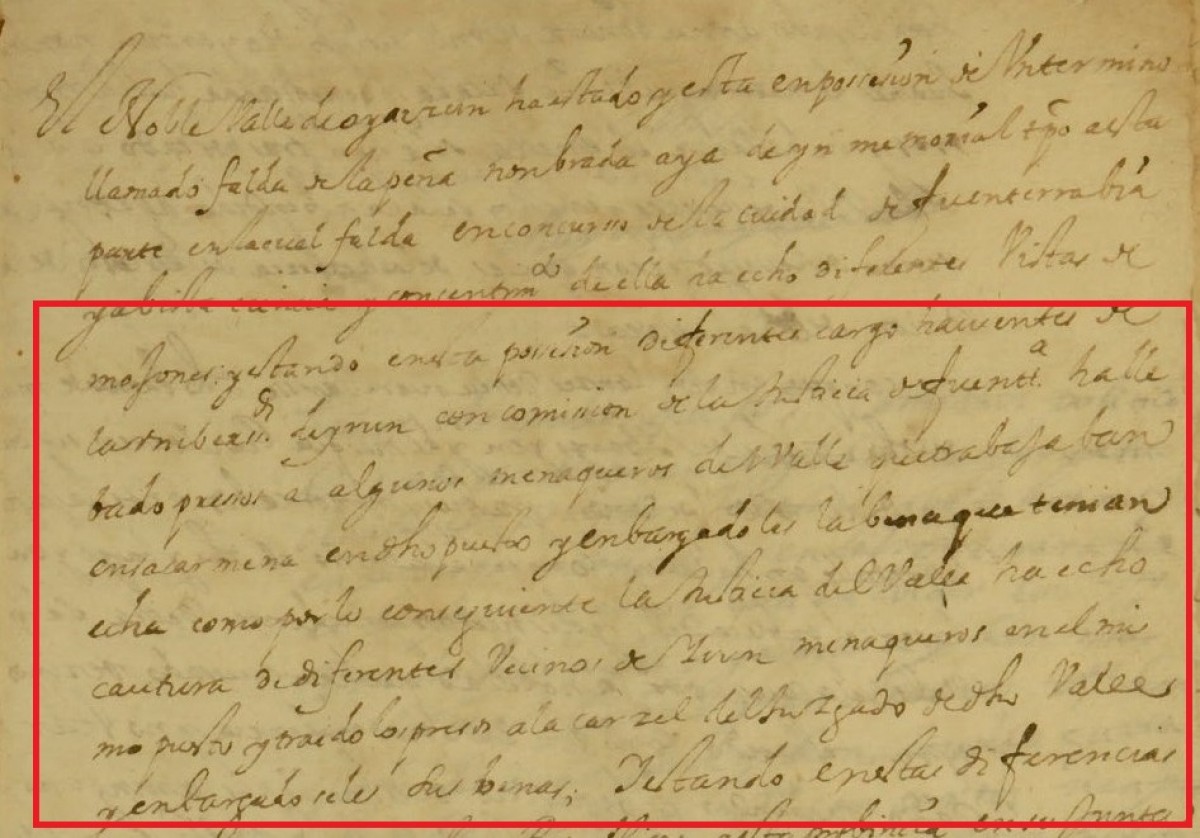 El Noble Valle de oyarçun ha estado y esta en possesion de Untermino
llamado falda de la peña nonbrada aya de yn memorial tpo aesta
parte en la cual falda enconcurso de la ciudad de fuenterrabia
y abista ciencia y consentimto de ella ha echo diferentes Vistas de
mojones; y estando enesta posesion diferentes cargo havientes de
la Unibersd de yrun con comision de la Justicia de fuenta halle
bado presos a algunos menaqueros del Valle que trabajaban
en sacar mena en dho puesto y enbargadoles la bena que tenian
echa como por lo conseguiente la Justicia del Valle ha echo
cautura de diferentes Vecinos de Yrun menaqueros en el mis
mo puesto y traido los presos a la carzel del Juzgado de dho Valle
y enbargadoseles sus benas; Yestando enestas diferencias
esta probincia en su Junta